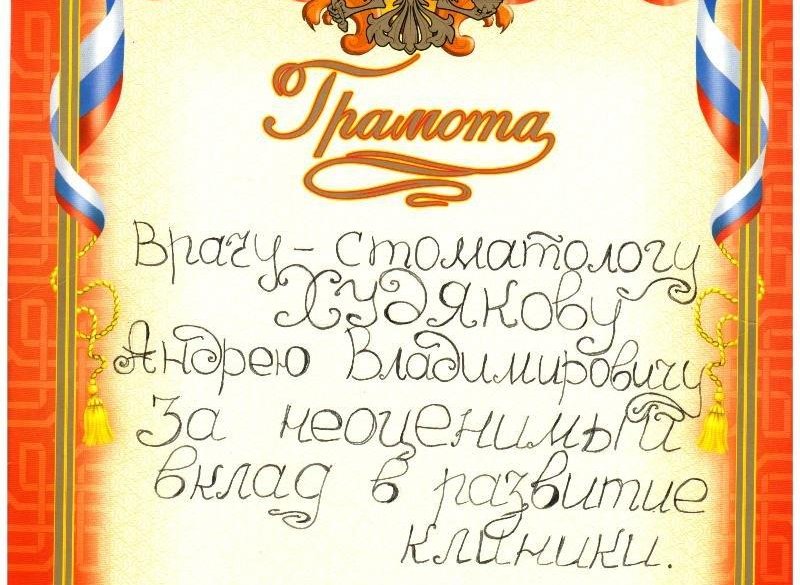 Грамота
Врачу - стоматологу
ХУДЯКОВУ
Андрею Владимировичу
За неоценимый
вклад в развитие
клиники.